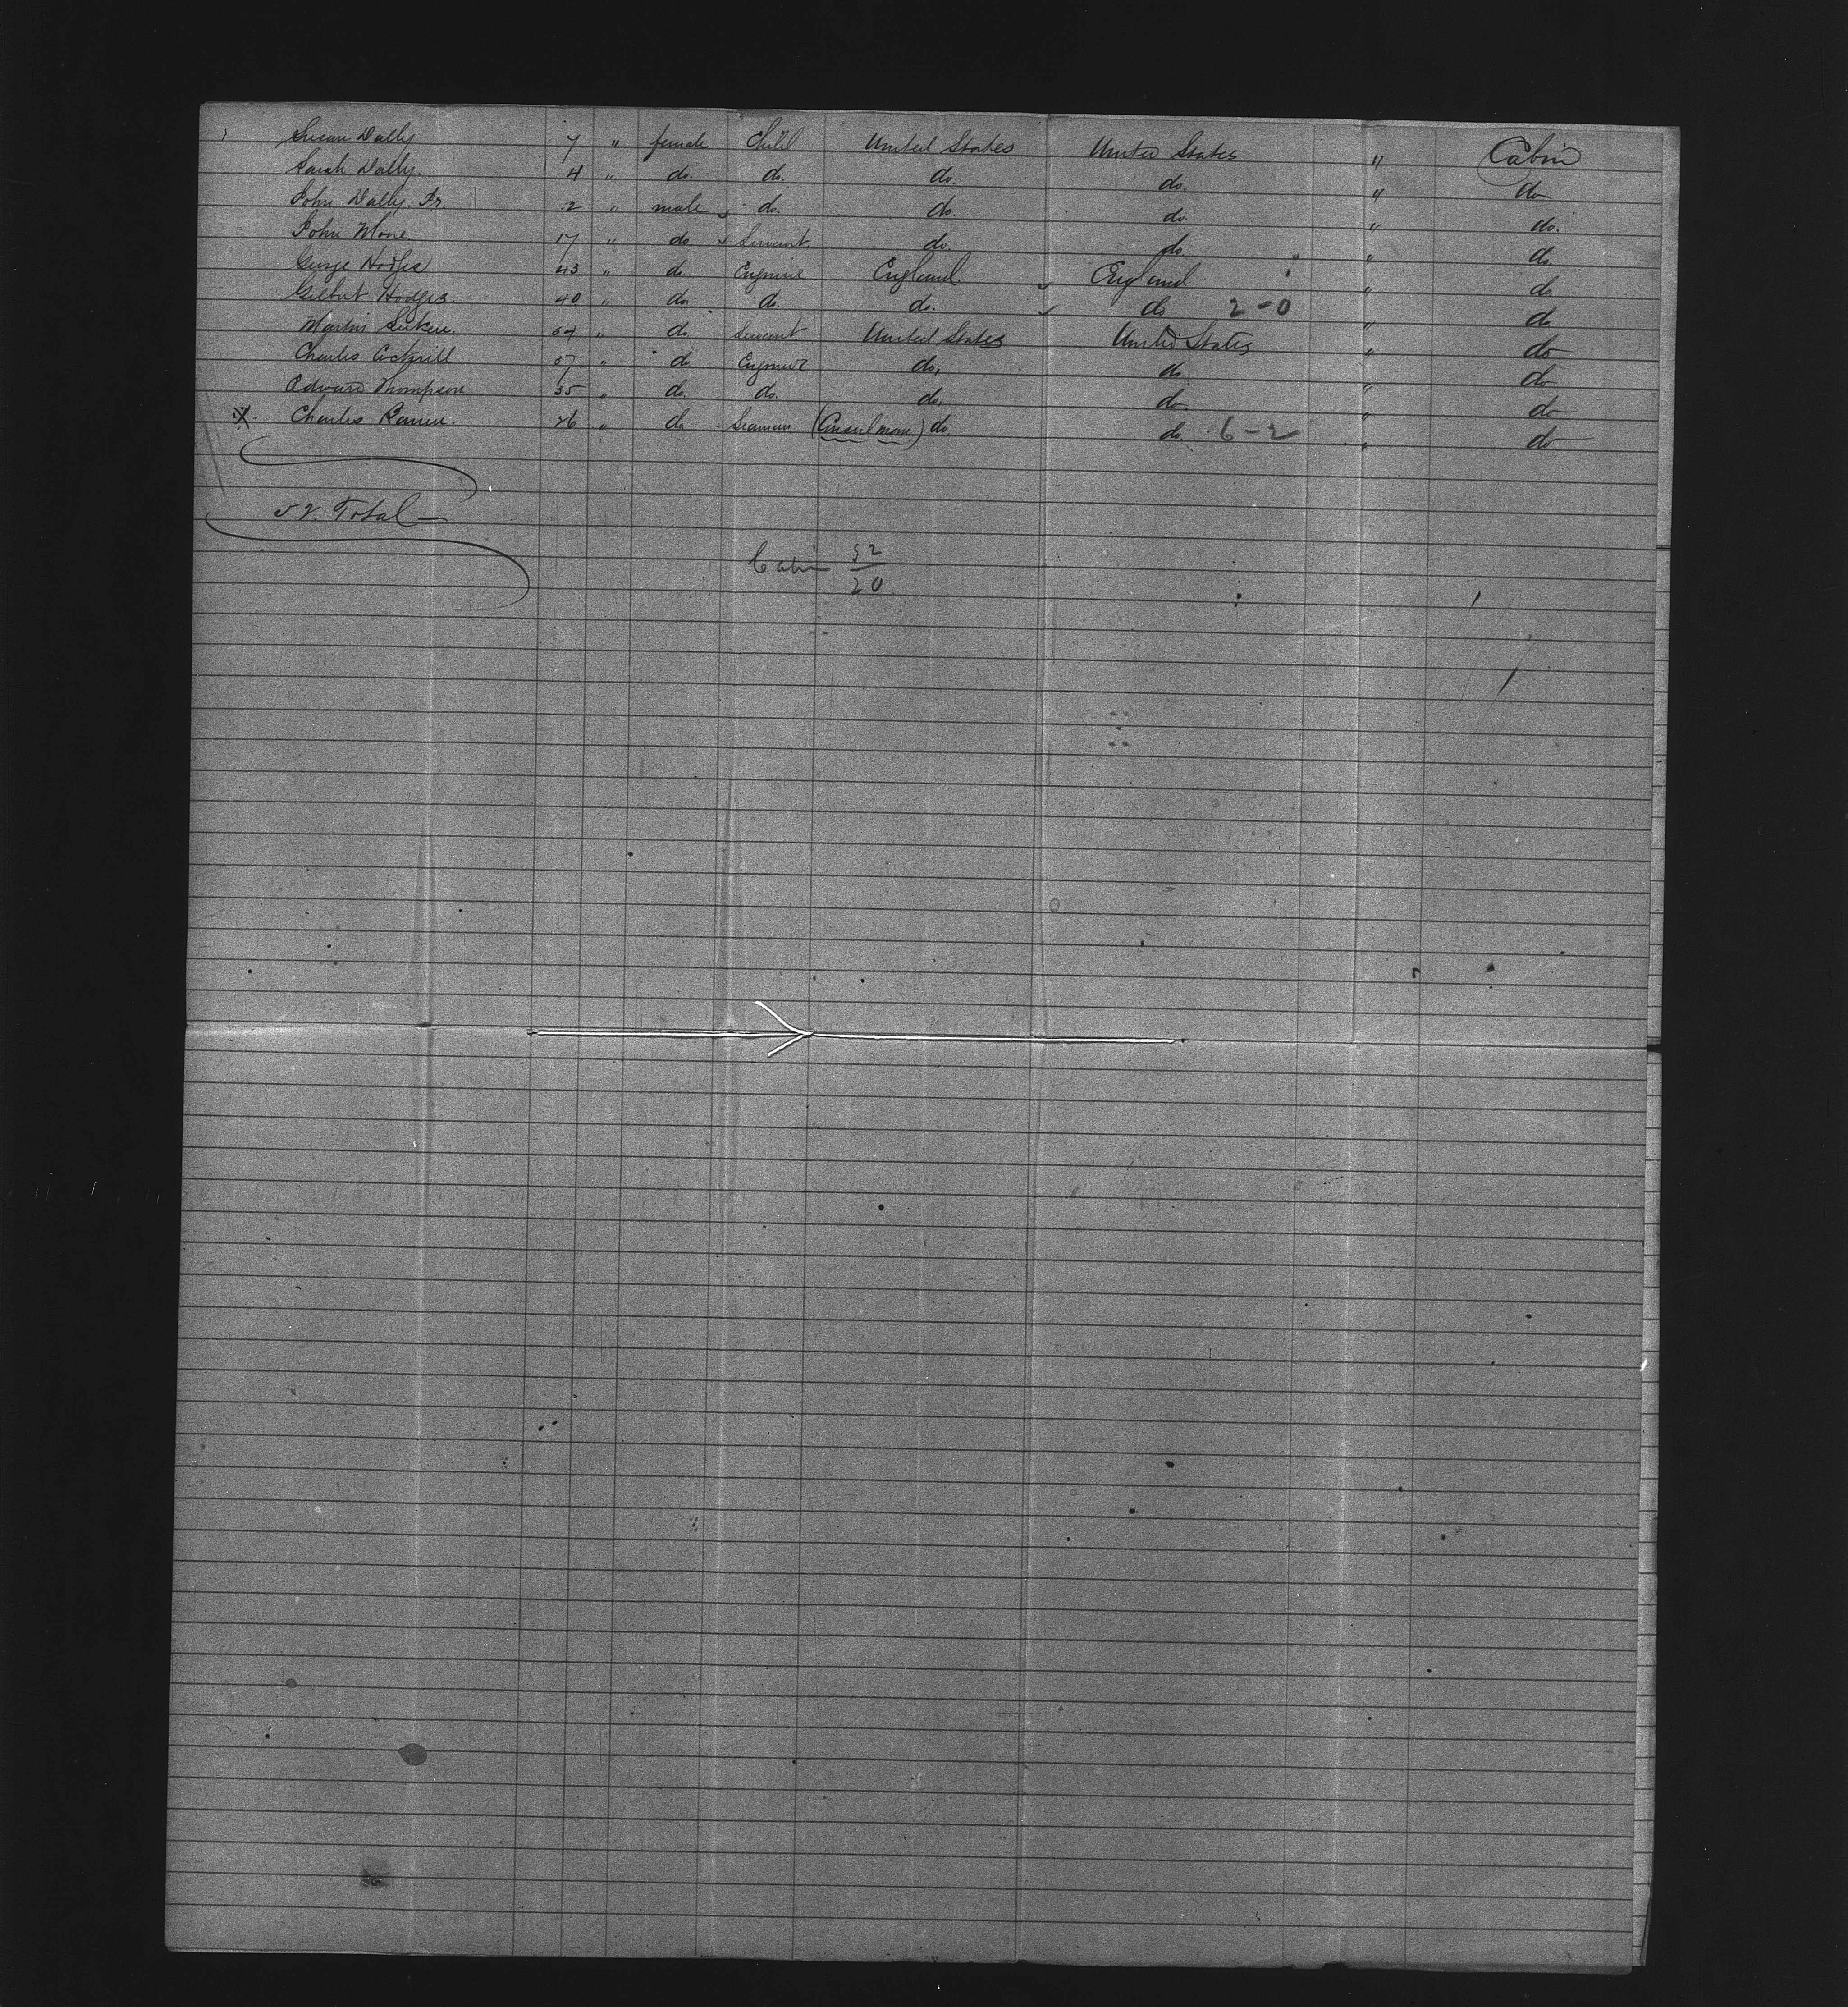 Susan Dally 7 " female Child United States United States " Cabin
Sarah Dally. 4 " do. do. do. do. " do
John Dally. Jr. 2 " male do. do. do. " do.
John Moore 17 " do Servant do. do. " do.
George Hodges 43 " do Engineer England. England " do
Gilbert Hodges. 40 " do. do. do. do 2-0 " do
Martin 54 " do. Servant United States United States " do
Charles Cockrill 57 " do Engineer do. do. " do
Edward Thompson 35 " do. do. do. do. " do
X. Charles 26 " do Seaman (Consul man) do. do. 6-2 " do
52. Total
Cabin 52
20